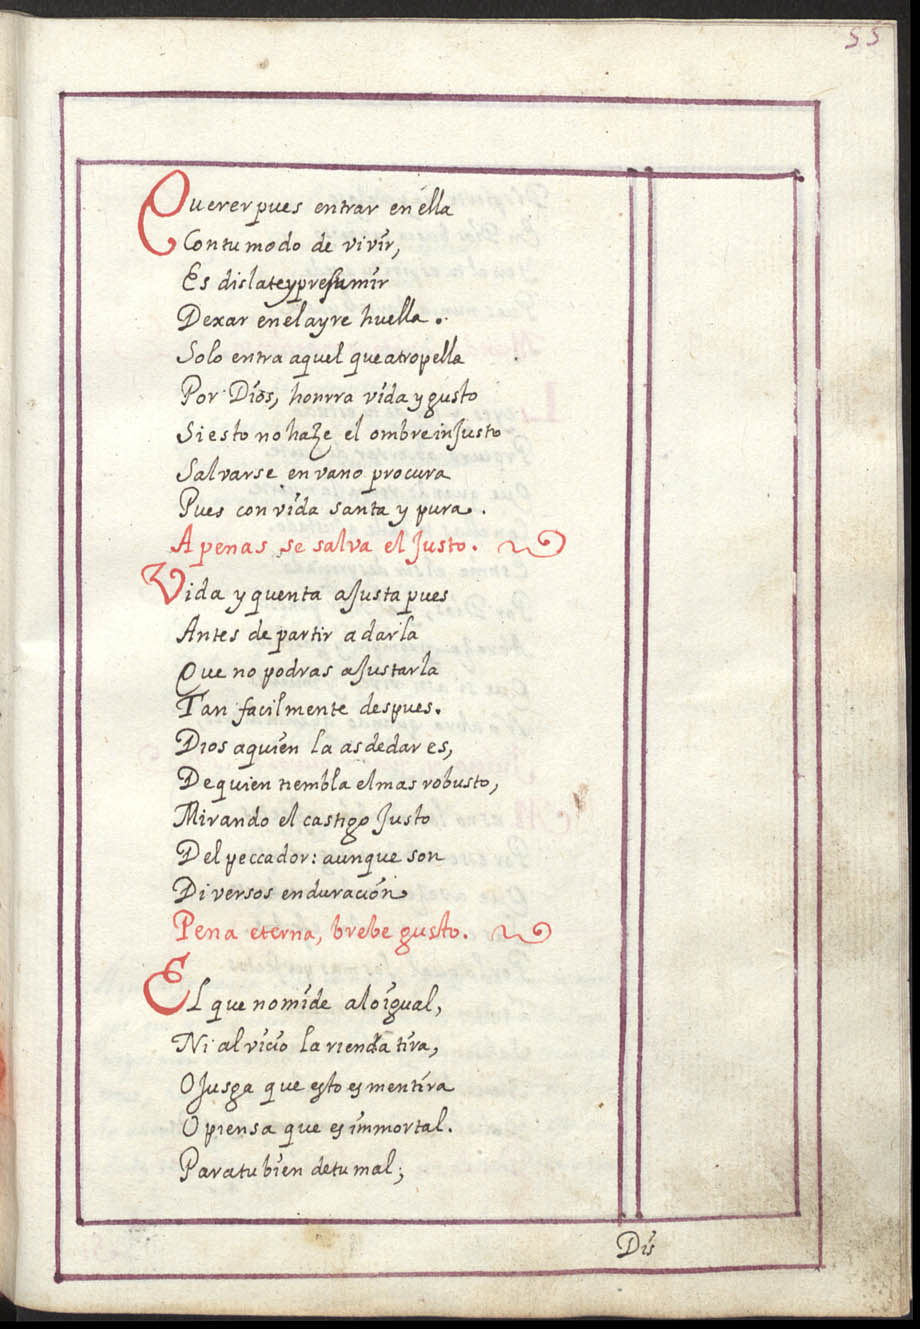 55
Querer pues entrar en ella
Con tu modo de vivir,
Es dislate y presumir
Dexar en el ayre huella.
Solo entra aquel que atropella
Por Dios, honrra vida y gusto
Si esto no haze el ombre inJusto
Salvarse en vano procura
Pues con vida santa y pura.
Apenas se salva el Justo.
Vida y quenta aJusta pues
Antes de partir a darla
Que no podras aJustarla
Tan facilmente despues.
Dios aquien la as de dar es,
De quien tiembla el mas robusto,
Mirando el castigo Justo
Del peccador: aunque son
Diversos en duración
Pena eterna, brebe gusto.
El que no mide a lo igual,
Ni al vicio la rienda tira,
O Jusga que esto es mentira
O piensa que es immortal.
Para tu bien de tu mal;
Dis